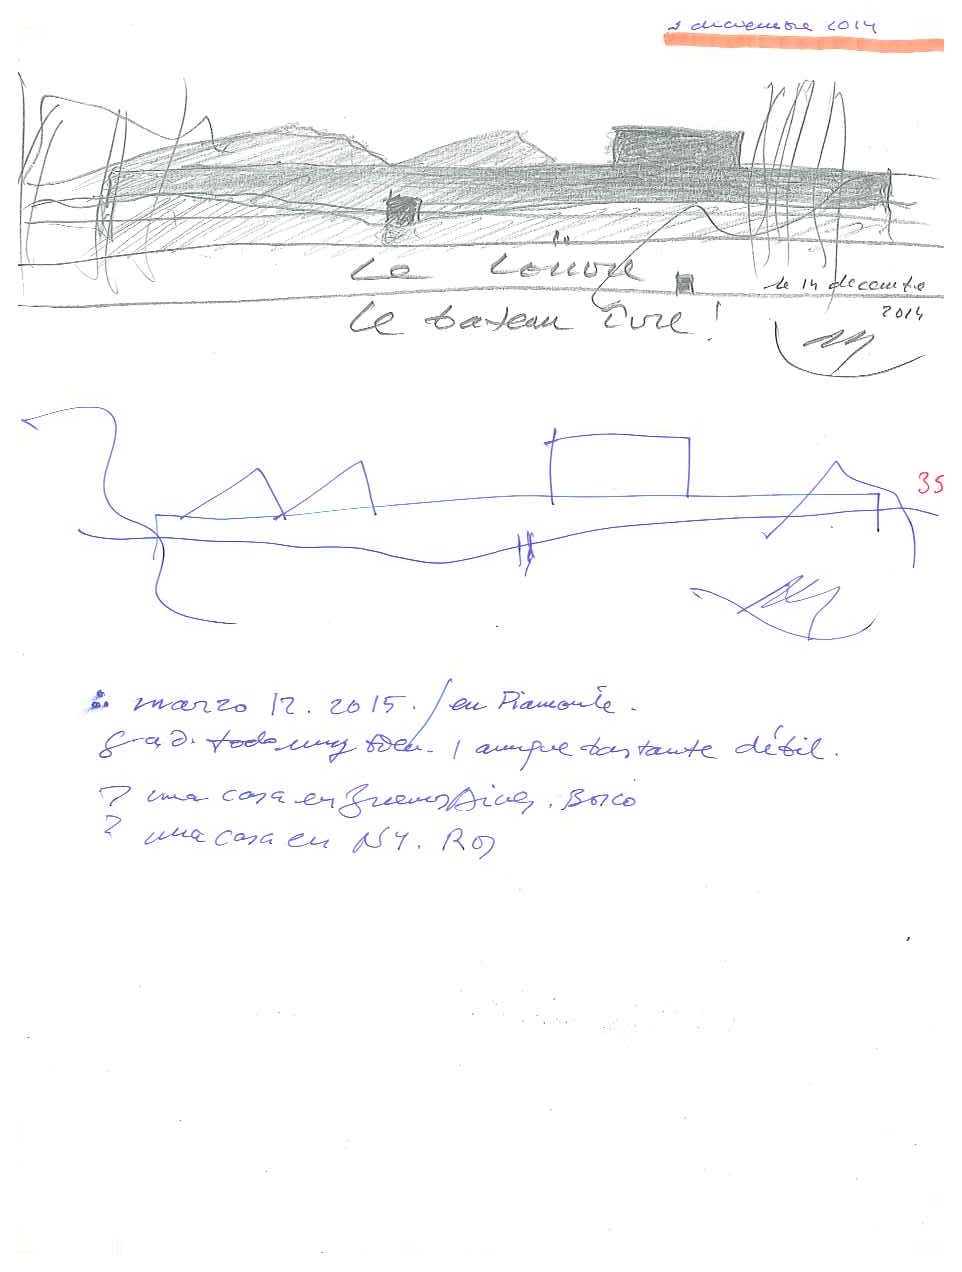 2 diciembre 2014
Le Louvre
le 14 decembre
2014
Le bateau ivre!
35
marzo 12. 2015. / en Piamonte.
todo muy bien. / aunque bastante débil.
? una casa en Buenos Aires. Bosco
? una casa en NY.